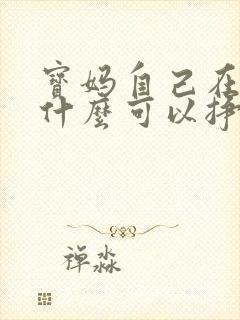 寶妈自己在
什麼可以掙
禅淼